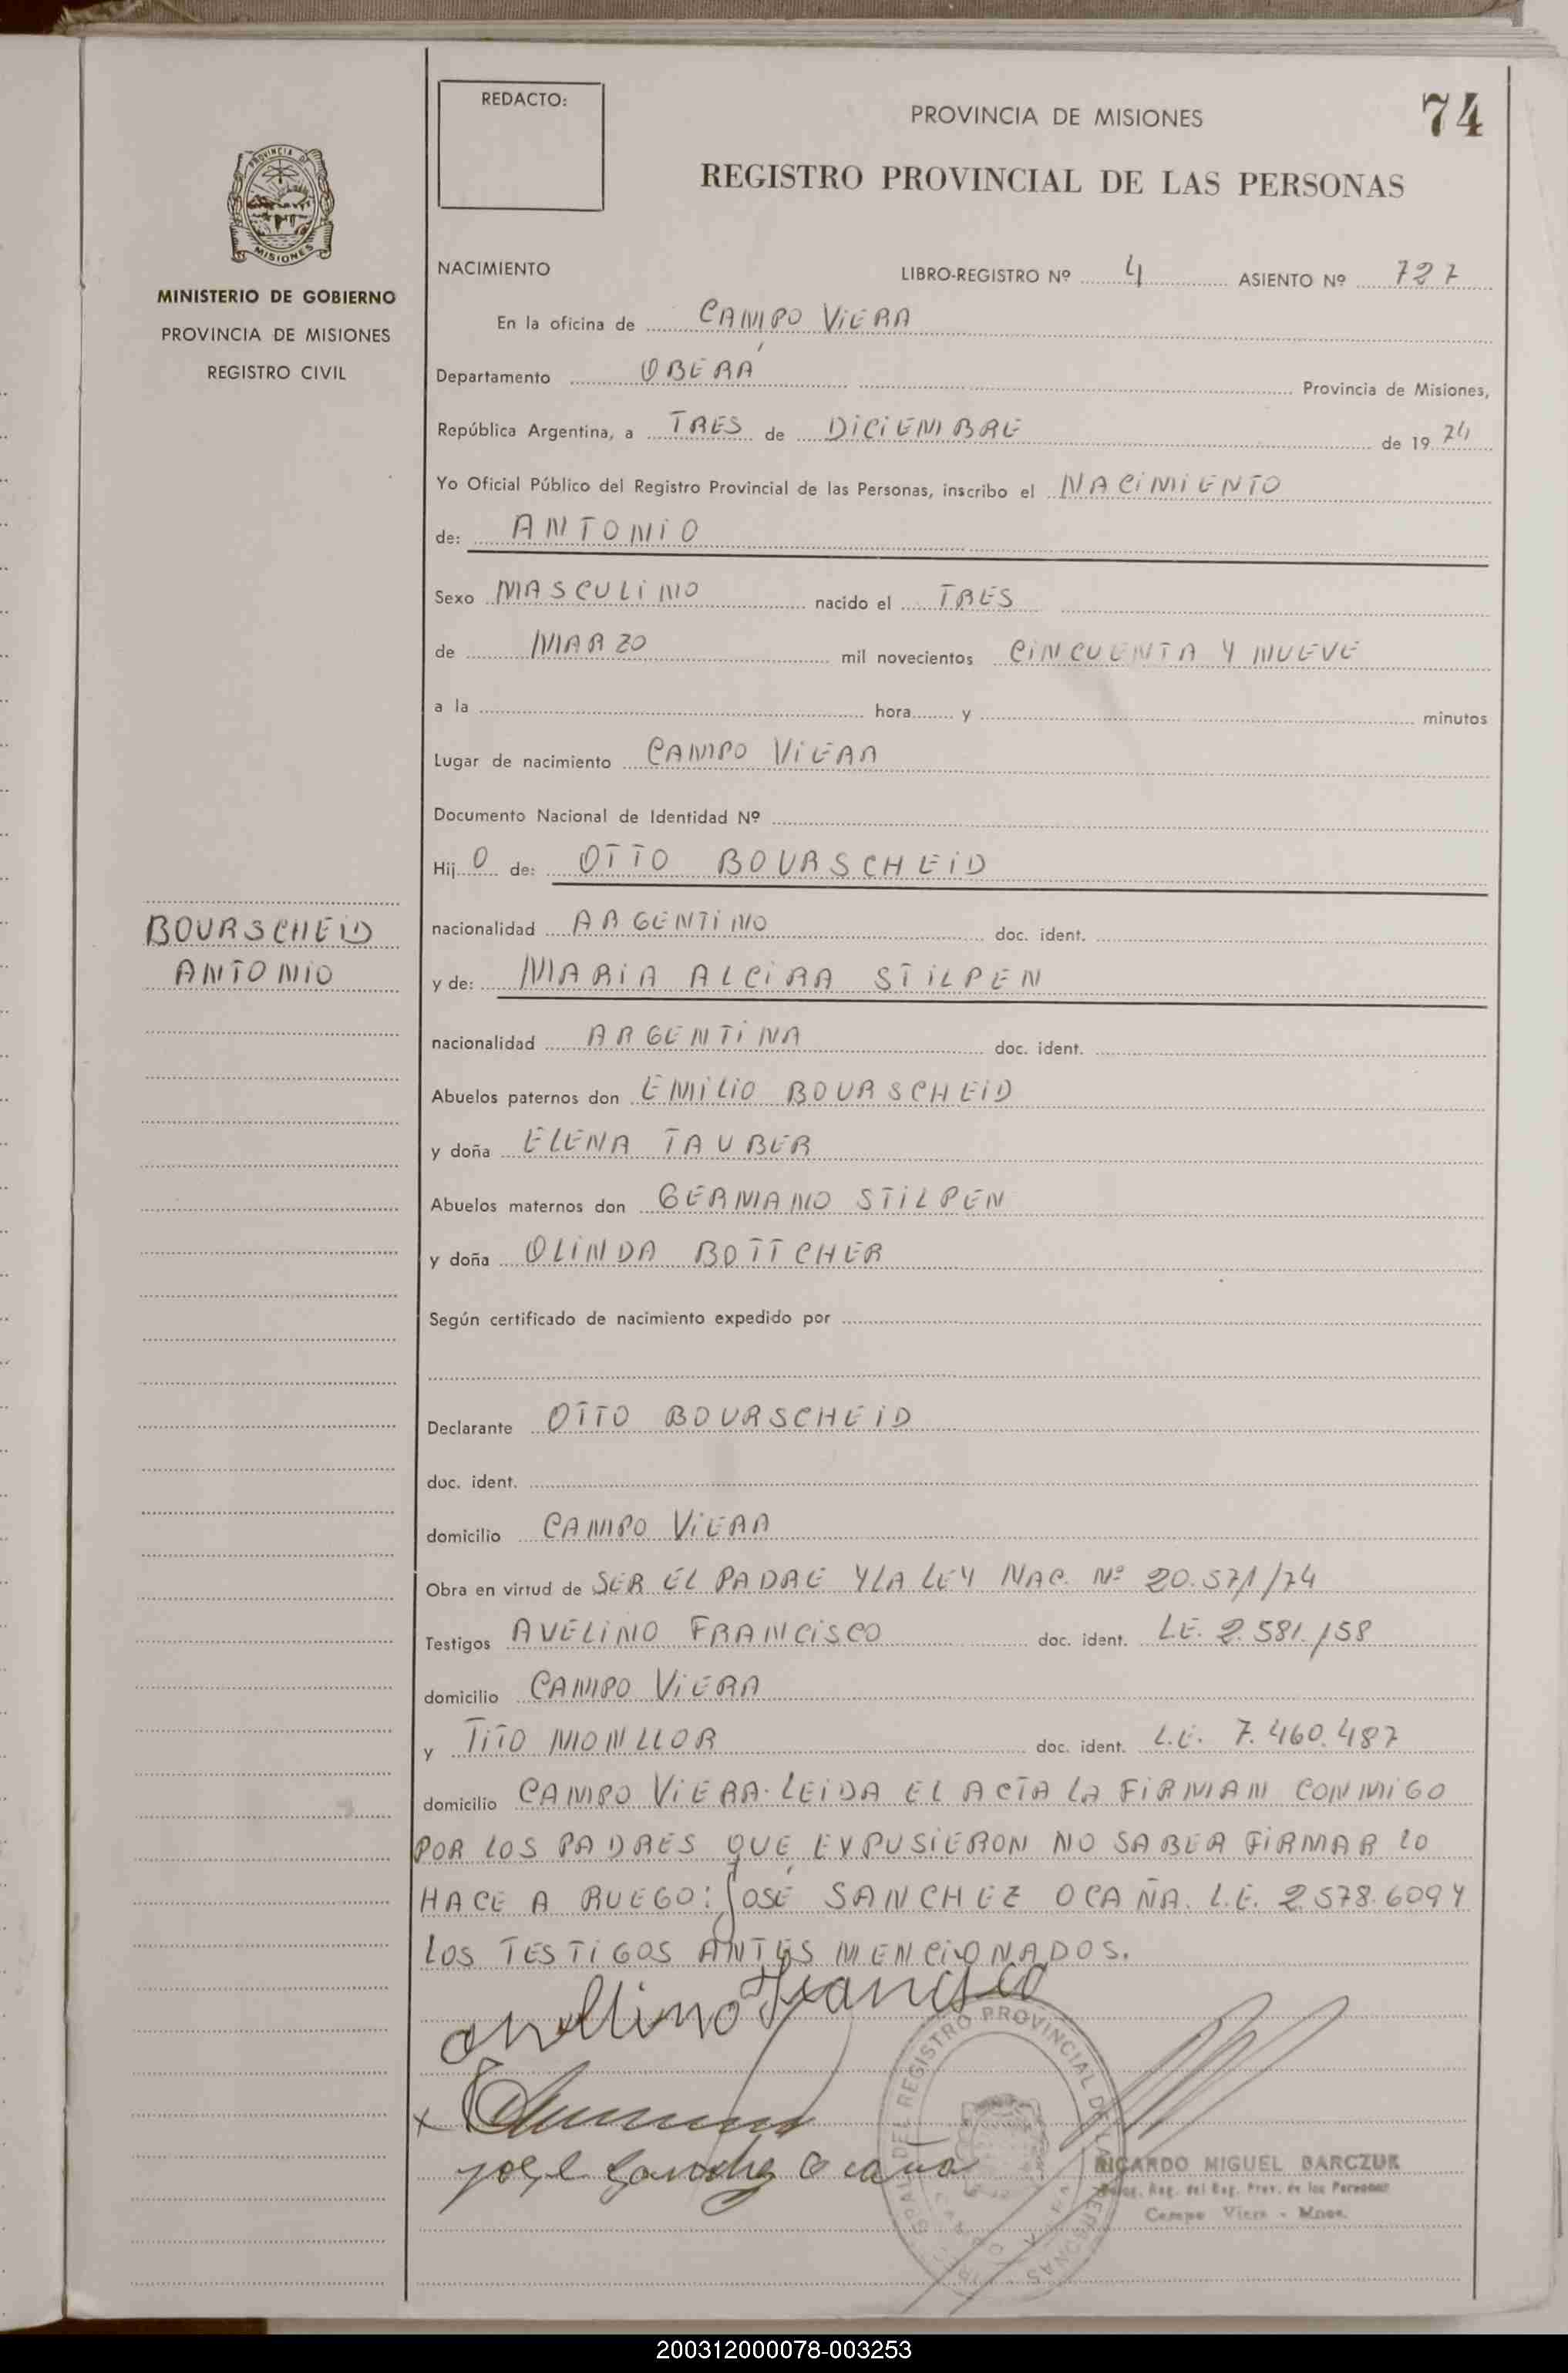 REDACTO:
PROVINCIA DE MISIONES
74
REGISTRO PROVINCIAL DE LAS PERSONAS
PROVINCIA DE
MISIONES
MINISTERIO DE GOBIERNO
PROVINCIA DE MISIONES
REGISTRO CIVIL
NACIMIENTO
LIBRO-REGISTRO Nº 4 ASIENTO Nº 727
En la oficina de CAMPO VIERA
Departamento OBERÁ Provincia de Misiones,
República Argentina, a TRES de DICIEMBRE de 1974
Yo Oficial Público del Registro Provincial de las Personas, inscribo el NACIMIENTO
de: ANTONIO
Sexo MASCULINO nacido el TRES
de MARZO mil novecientos CINCUENTA Y NUEVE
a la hora y minutos
Lugar de nacimiento CAMPO VIERA
Documento Nacional de Identidad Nº
Hij O de: OTTO BOURSCHEID
BOURSCHEID
ANTONIO
nacionalidad ARGENTINO doc. ident.
y de: MARIA ALCIRA STILPEN
nacionalidad ARGENTINA doc. ident.
Abuelos paternos don EMILIO BOURSCHEID
y doña ELENA TAUBER
Abuelos maternos don GERMANO STILPEN
y doña OLINDA BOTTCHER
Según certificado de nacimiento expedido por
Declarante OTTO BOURSCHEID
doc. ident.
domicilio CAMPO VIERA
Obra en virtud de SER EL PADRE Y LA LEY NAC. Nº 20.571/74
Testigos AVELINO FRANCISCO doc. ident. L.E. 2.581.158
domicilio CAMPO VIERA
y TITO MONLLOR doc. ident. L.E. 7.460.487
domicilio CAMPO VIERA. LEIDA EL ACTA LA FIRMAN CONMIGO
POR LOS PADRES QUE EXPUSIERON NO SABER FIRMAR LO
HACE A RUEGO: JOSÉ SANCHEZ OCAÑA. L.E. 2.578.609 Y
LOS TESTIGOS ANTES MENCIONADOS.
Avellino Francisco
José Sanchez Ocaña
REGISTRO PROVINCIAL DE LAS PERSONAS
RICARDO MIGUEL BARCZUK
del Reg. Prov. de las Personas
Campo Viera - Mnes.
200312000078-003253